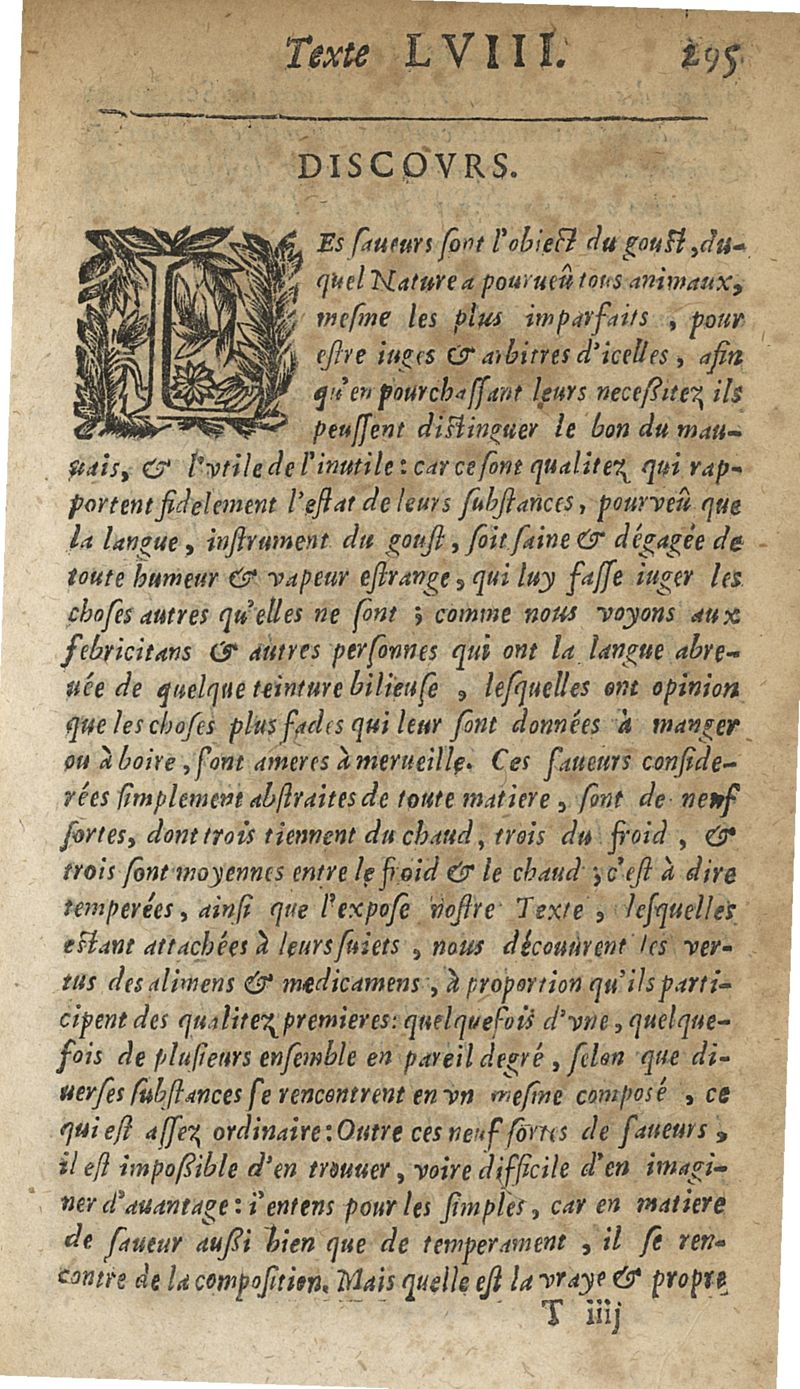 Texte LVIII. 295
DISCOVRS.
LEs ſaueurs ſont l'obiect du gouſt, du-
quel Nature a pourueû tous animaux,
meſme les plus imparfaits, pour
eſtre iuges & arbitres d'icelles, afin
qu'en pourchaſſant leurs neceßitez ils
peuſſent diſtinguer le bon du mau-
uais, & l'vtile de l'inutile: car ce ſont qualitez qui rap-
portent fidelement l'eſtat de leurs ſubſtances, pourveû que
la langue, inſtrument du gouſt, ſoit ſaine & dégagée de
toute humeur & vapeur eſtrange, qui luy faſſe iuger les
choſes autres qu'elles ne ſont; comme nous voyons aux
febricitans & autres perſonnes qui ont la langue abre-
uée de quelque teinture bilieuſe, leſquelles ont opinion
que les choſes plus fades qui leur ſont données à manger
ou à boire, ſont ameres à merueille. Ces ſaueurs conſide-
rées ſimplement abſtraites de toute matiere, ſont de neuf
ſortes, dont trois tiennent du chaud, trois du froid, &
trois ſont moyennes entre le froid & le chaud; c'eſt à dire
temperées, ainſi que l'expoſe noſtre Texte, leſquelles
eſtant attachées à leurs ſuiets, nous découurent les ver-
tus des alimens & medicamens, à proportion qu'ils parti-
cipent des qualitez premieres: quelquefois d'vne, quelque-
fois de pluſieurs enſemble en pareil degré, ſelon que di-
uerſes ſubſtances ſe rencontrent en vn meſme compoſé, ce
qui eſt aſſez ordinaire: Outre ces neuf ſortes de ſaueurs,
il eſt impoßible d'en trouuer, voire difficile d'en imagi-
ner d'auantage: i'entens pour les ſimples, car en matiere
de ſaueur außi bien que de temperament, il ſe ren-
contre de la compoſition. Mais quelle eſt la vraye & propre
T iiij